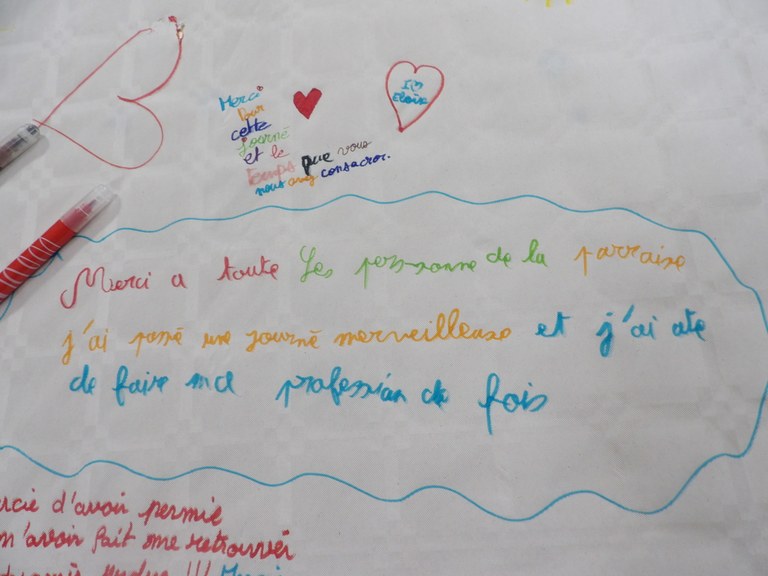 Merci
Pour
cette
journé
et le
temps que vous
nous avez consacror.
I ♡
Eloïse
Merci a toute Les personne de la parraise
j'ai passé une journé merveilleuse et j'ai ate
de faire ma profession de fois
rcie d'avoir permie
m'avoir fait me retrouver
!!!